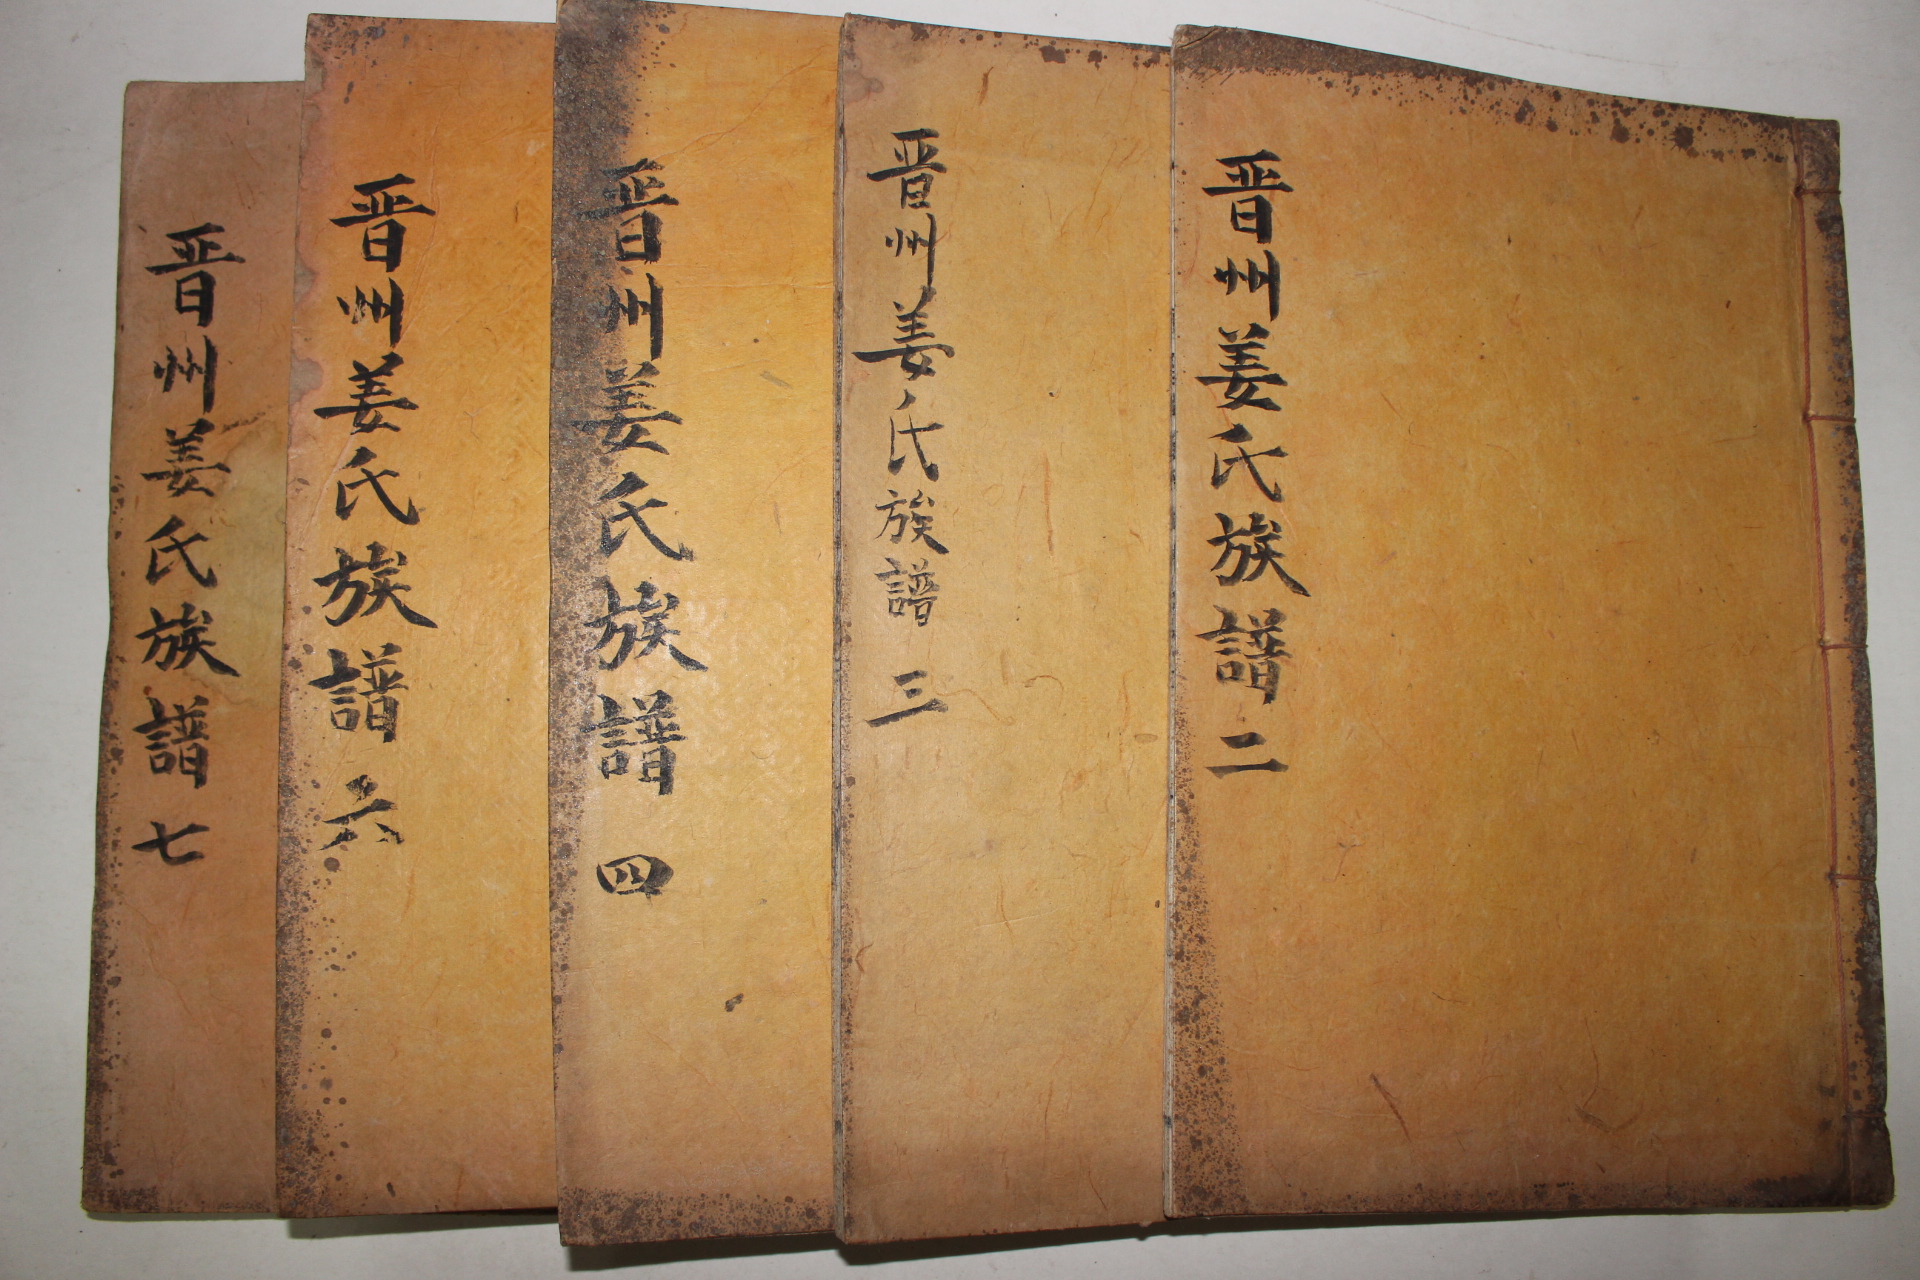 晋州姜氏族譜 二
晋州姜氏族譜 三
晋州姜氏族譜 四
晋州姜氏族譜 六
晋州姜氏族譜 七